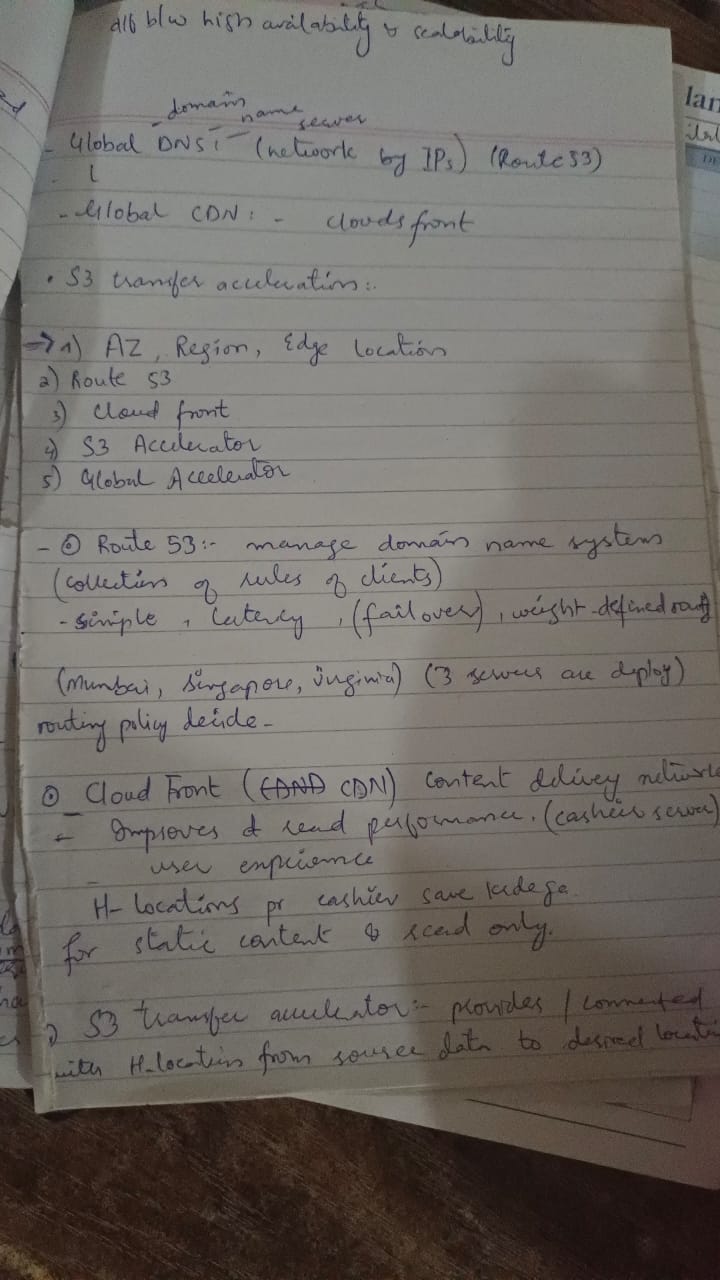 dif b/w high availability & scalability
domain name server
- Global DNS :- (network by IPs) (Route 53)
- Global CDN : - clouds front
• S3 transfer acceleration :-
→ 1) AZ, Region, Edge location
2) Route 53
3) Cloud front
4) S3 Accelerator
5) Global Accelerator
- Route 53 :- manage domain name system
(collection of rules of clients)
- simple, latency, (failover), weight-defined
(Mumbai, Singapore, Virginia) (3 servers are deploy)
routing policy decide -
Cloud Front (CDN) content delivey network
- Improves read performance. (cashier server)
user experience
H- locations pr cashier save krdega.
for static content & read only.
S3 transfer accelerator :- provides / connected
with H-location from source data to desired
lan